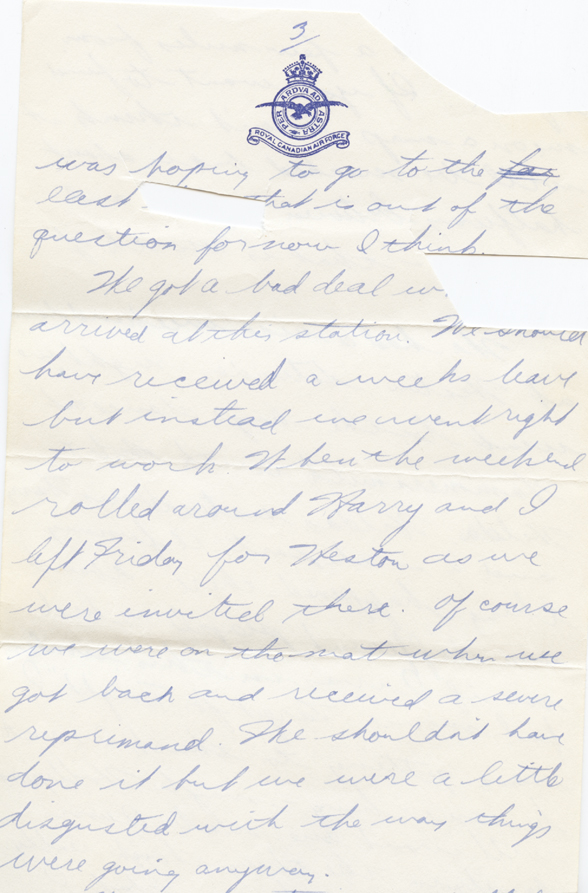 3
PER ARDVA AD ASTRA
ROYAL CANADIAN AIR FORCE
was hoping to go to the far
east that is out of the
question for now I think.
We got a bad deal
arrived at this station. We should
have received a weeks leave
but instead we went right
to work. When the weekend
rolled around Harry and I
left Friday for Weston as we
were invited there. Of course
we were on the mat when we
got back and received a severe
reprimand. We shouldn't have
done it but we were a little
disgusted with the way things
were going anyway.